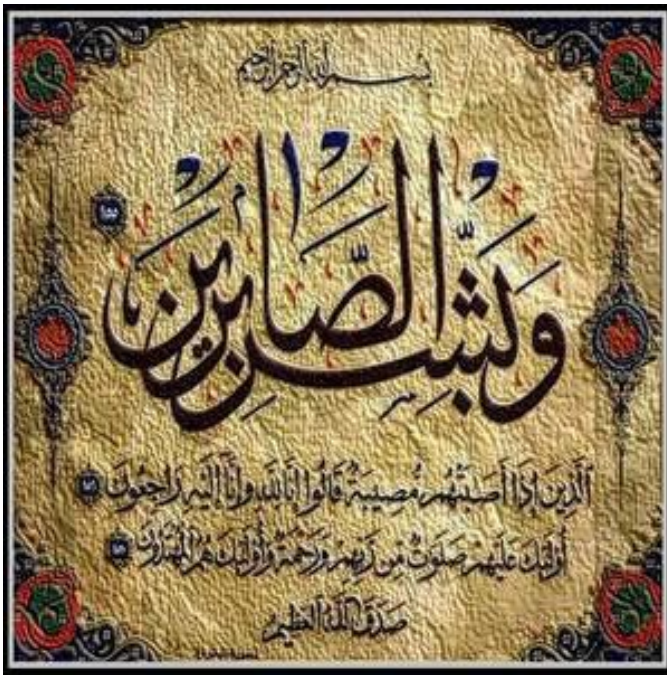 بسم الله الرحمن الرحيم
وَبَشِّرِ الصَّابِرِينَ ١٥٥
الَّذِينَ إِذَا أَصَابَتْهُم مُّصِيبَةٌ قَالُوا إِنَّا لِلَّهِ وَإِنَّا إِلَيْهِ رَاجِعُونَ
أُولَئِكَ عَلَيْهِمْ صَلَوَاتٌ مِّن رَّبِّهِمْ وَرَحْمَةٌ وَأُولَئِكَ هُمُ الْمُهْتَدُونَ
صدق الله العظيم